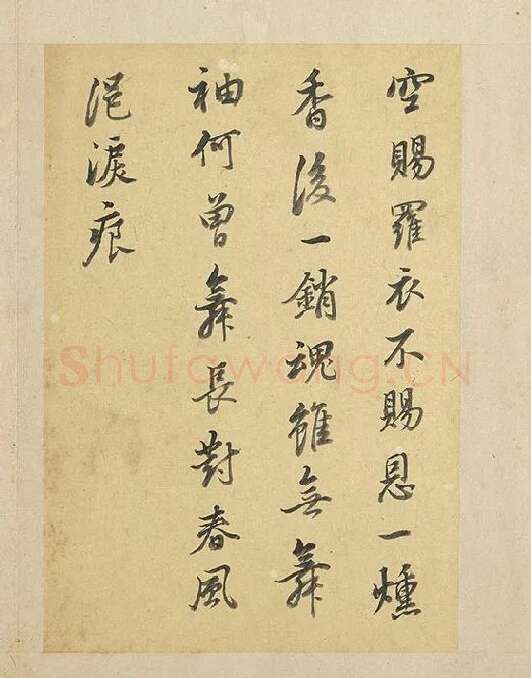 空賜羅衣不賜恩一燻
香後一銷魂雖無舞
袖何曾舞長對春風
浥淚痕
Shufawang.CN